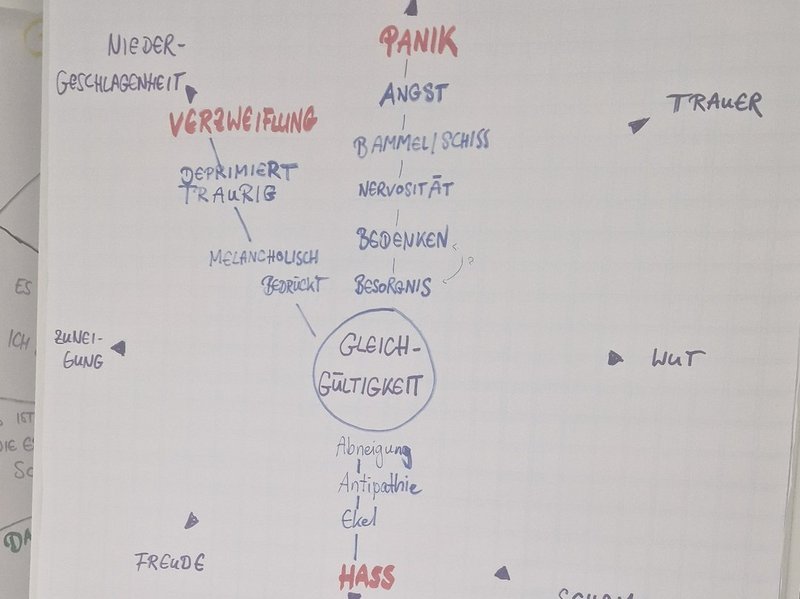 NIEDER-
GESCHLAGENHEIT
VERZWEIFLUNG
DEPRIMIERT
TRAURIG
MELANCHOLISCH
BEDRÜCKT
PANIK
ANGST
BAMMEL/SCHISS
NERVOSITÄT
BEDENKEN
?
BESORGNIS
TRAUER
ZUNEI-
GUNG
GLEICH-
GÜLTIGKEIT
WUT
Abneigung
Antipathie
Ekel
HASS
FREUDE
ES
ICH
IST
DIE